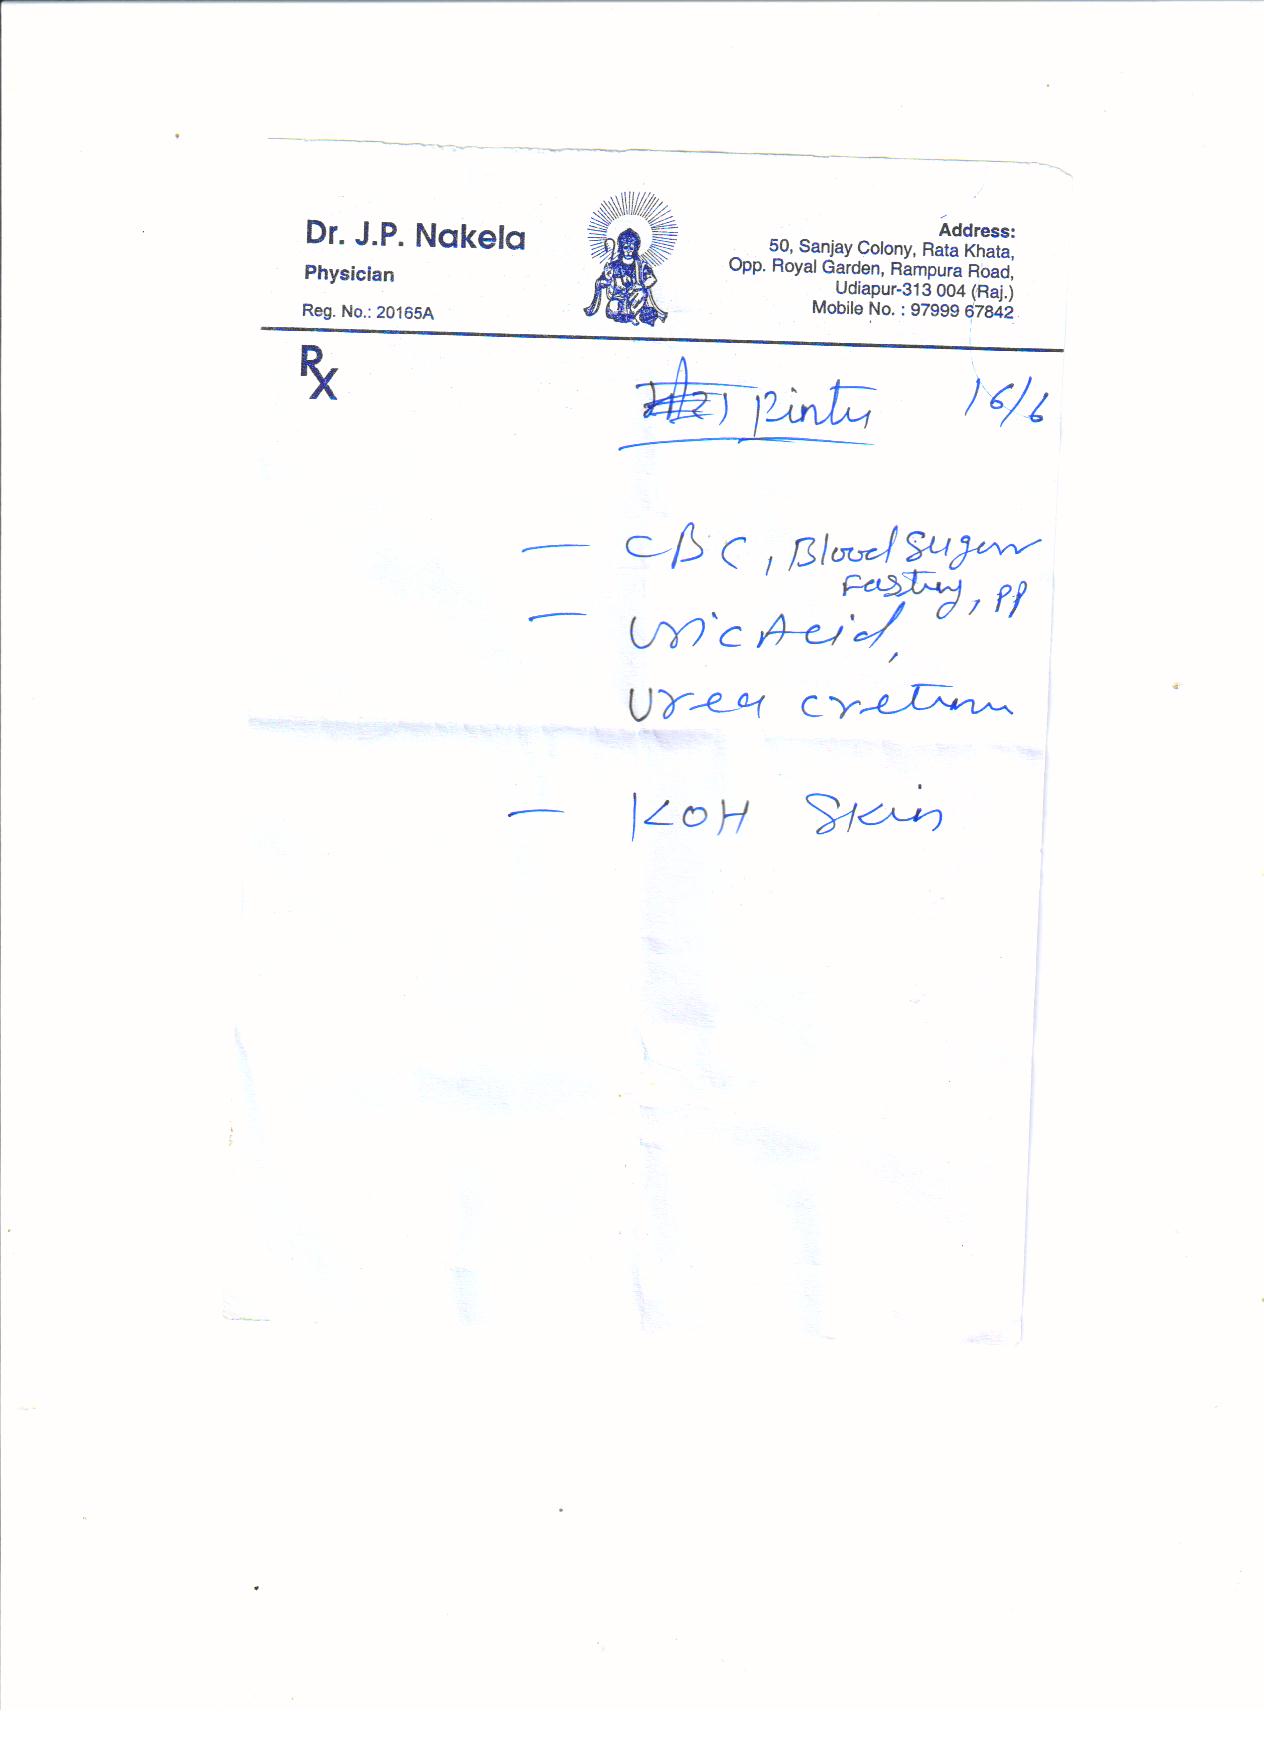 Dr. J.P. Nakela
Physician
Reg. No.: 20165A
Address:
50, Sanjay Colony, Rata Khata,
Opp. Royal Garden, Rampura Road,
Udiapur-313 004 (Raj.)
Mobile No. : 97999 67842
Rx
Pintu 16/6
— CBC, Blood Sugar
Fasting, PP
— Uric Acid,
Urea cretinn
— KOH Skin